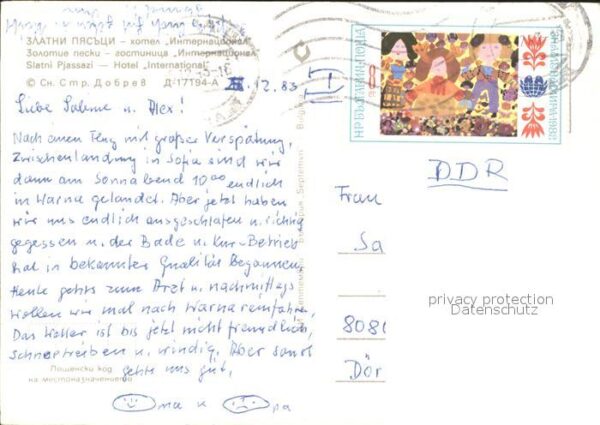 ЗЛАТНИ ПЯСЪЦИ – хотел „Интернационал“
Золотые пески – гостиница „Интернационал“
Slatni Pjassazi — Hotel „International“
© Сн. Стр. Добрев Д-17794-А
12.83
Liebe Salome u. Alex!
Nach einem Flug mit großer Verspätung,
Zwischenlandung in Sofia sind wir
dann am Sonnabend 10⁰⁰ endlich
in Warna gelandet. Aber jetzt haben
wir uns endlich ausgeschlafen u. richtig
gegessen u. der Bade u. Kur-Betrieb
hat in bekannter Qualität begonnen.
Heute gehts zum Arzt u. nachmittags
wollen wir mal nach Warna reinfahren,
Das Wetter ist bis jetzt nicht freundlich,
Schneetreiben u. windig. Aber sonst
gehts uns gut.
Oma u Opa
Пощенски код
на местоназначението
Септември България
НР БЪЛГАРИЯ ПОЩА
DDR
Frau
Sa
8081
Dör
privacy protection
Datenschutz